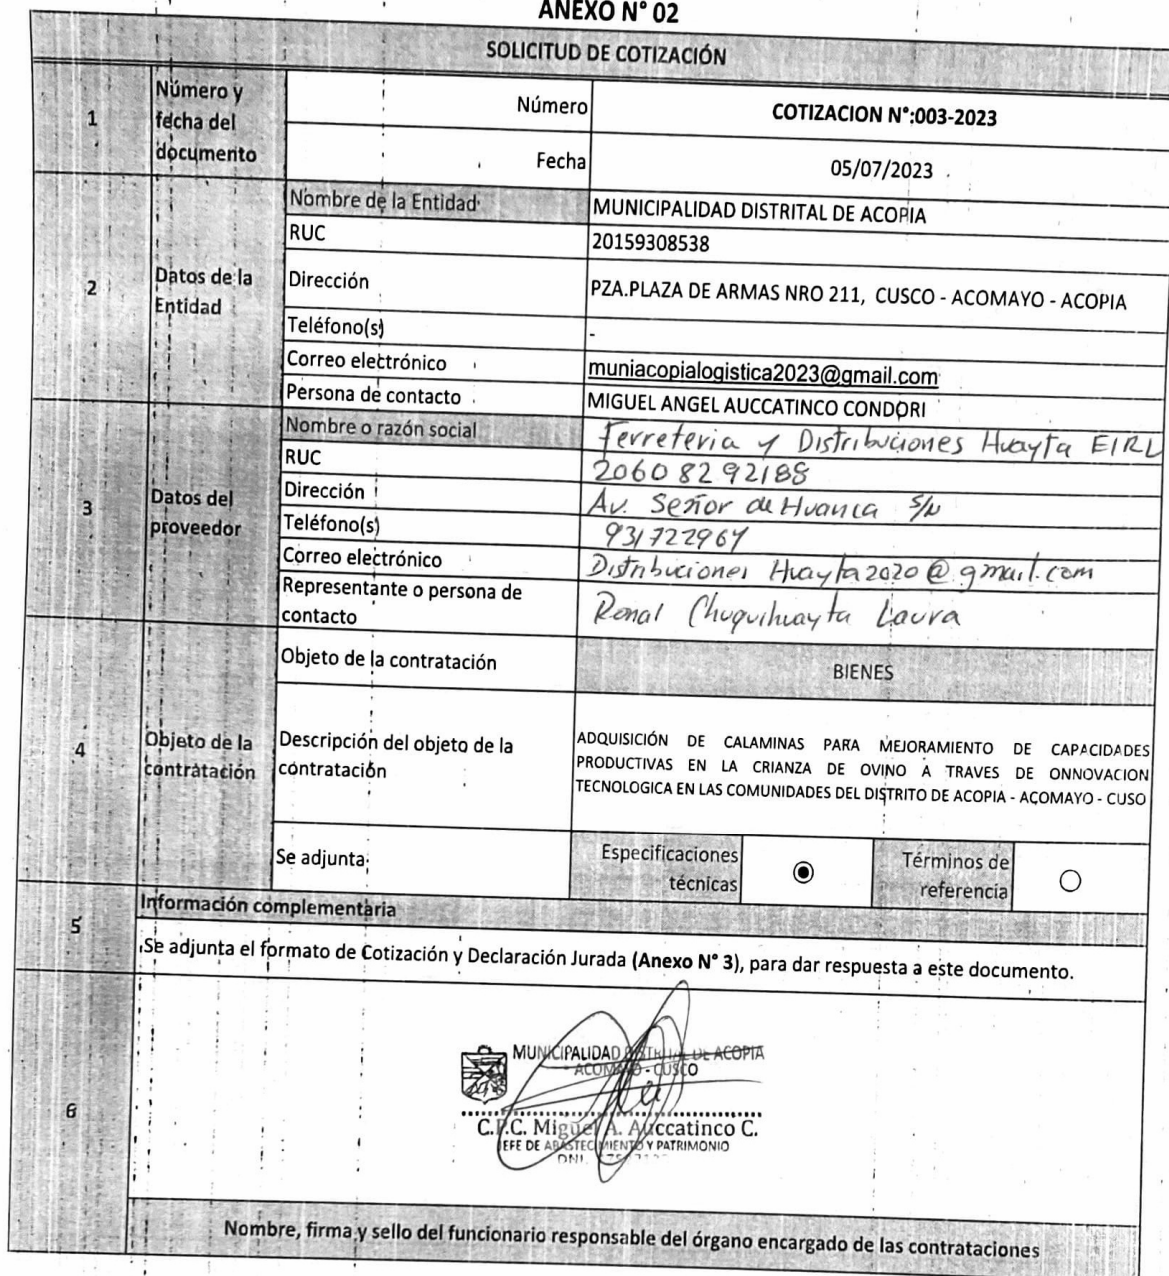 ANEXO N° 02
SOLICITUD DE COTIZACIÓN
1
Número y
fecha del
documento
Número
COTIZACION N°:003-2023
Fecha
05/07/2023
2
Datos de la
Entidad
Nombre de la Entidad
MUNICIPALIDAD DISTRITAL DE ACOPIA
RUC
20159308538
Dirección
PZA.PLAZA DE ARMAS NRO 211, CUSCO - ACOMAYO - ACOPIA
Teléfono(s)
-
Correo electrónico
muniacopialogistica2023@gmail.com
Persona de contacto
MIGUEL ANGEL AUCCATINCO CONDORI
3
Datos del
proveedor
Nombre o razón social
Ferreteria y Distribuciones Huayta EIRL
RUC
20608292188
Dirección
Av. Señor de Huanca S/N
Teléfono(s)
931722964
Correo electrónico
Distribuciones Huayta2020@gmail.com
Representante o persona de
contacto
Ronal Chuquihuayta Laura
4
Objeto de la
contratación
Objeto de la contratación
BIENES
Descripción del objeto de la
contratación
ADQUISICIÓN DE CALAMINAS PARA MEJORAMIENTO DE CAPACIDADES
PRODUCTIVAS EN LA CRIANZA DE OVINO A TRAVES DE ONNOVACION
TECNOLOGICA EN LAS COMUNIDADES DEL DISTRITO DE ACOPIA - ACOMAYO - CUSO
Se adjunta
Especificaciones
técnicas
Términos de
referencia
5
Información complementaria
Se adjunta el formato de Cotización y Declaración Jurada (Anexo N° 3), para dar respuesta a este documento.
6
MUNICIPALIDAD DISTRITAL DE ACOPIA
ACOMAYO - CUSCO
C.P.C. Miguel A. Auccatinco C.
JEFE DE ABASTECIMIENTO Y PATRIMONIO
DNI.
Nombre, firma y sello del funcionario responsable del órgano encargado de las contrataciones